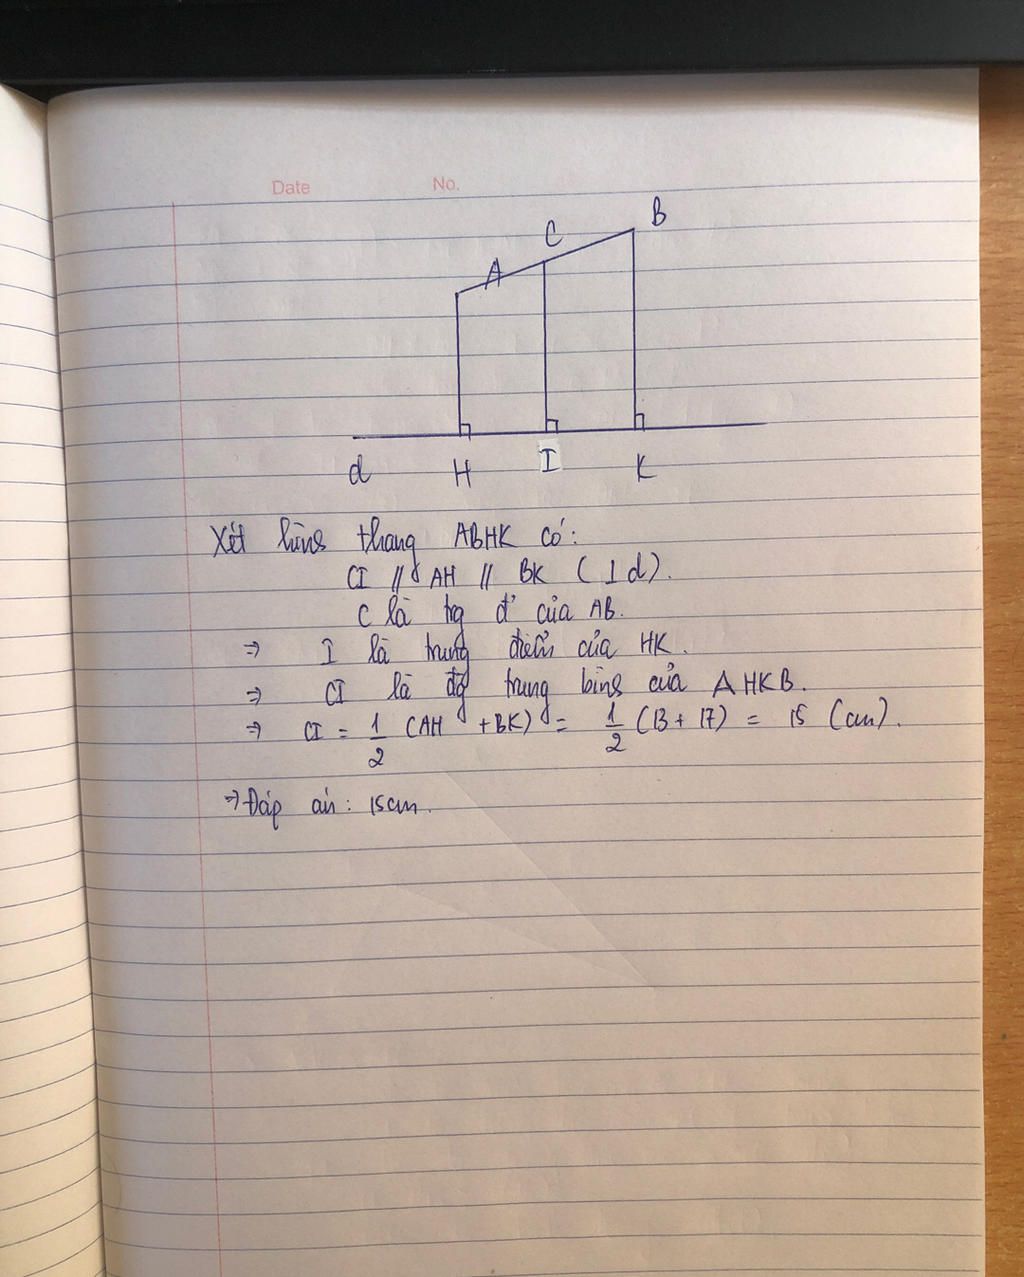 Date No.
B
C
A
d H I K
Xét hình thang ABHK có:
CI // AH // BK (⊥ d).
C là trg đ' của AB.
⇒ I là trung điểm của HK.
⇒ CI là đg trung bình của AHKB.
⇒ CI = 1/2 (AH + BK) = 1/2 (13 + 17) = 15 (cm).
⇒ Đáp án: 15cm.